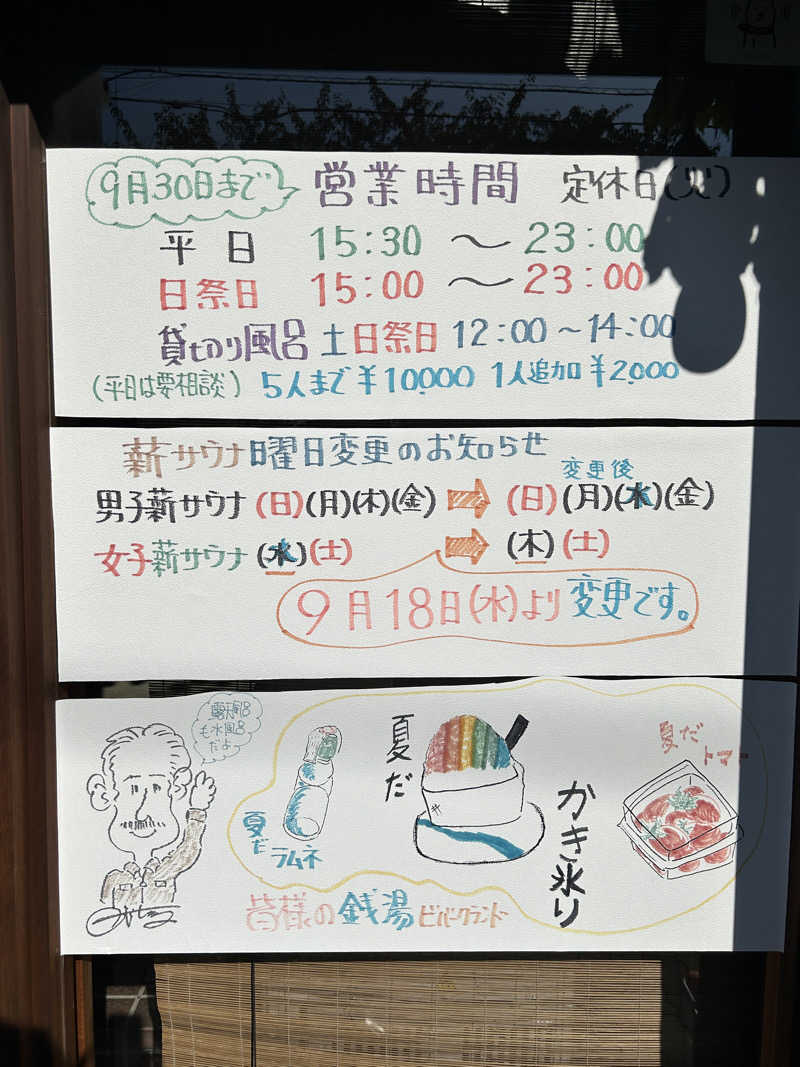 9月30日まで 営業時間 定休日(火)
平日 15:30 〜 23:00
日祭日 15:00 〜 23:00
貸切り風呂 土日祭日 12:00 〜 14:00
(平日は要相談) 5人まで ¥10,000 1人追加 ¥2,000
薪サウナ曜日変更のお知らせ
変更後
男子薪サウナ (日)(月)(木)(金) (日)(月)(水)(金)
女子薪サウナ (水)(土) (木)(土)
9月18日(水)より変更です。
露天風呂
も水風呂
だよ
夏だ
ラムネ
夏だ
かき氷り
夏だ
トマト
皆様の銭湯 ビバークランド